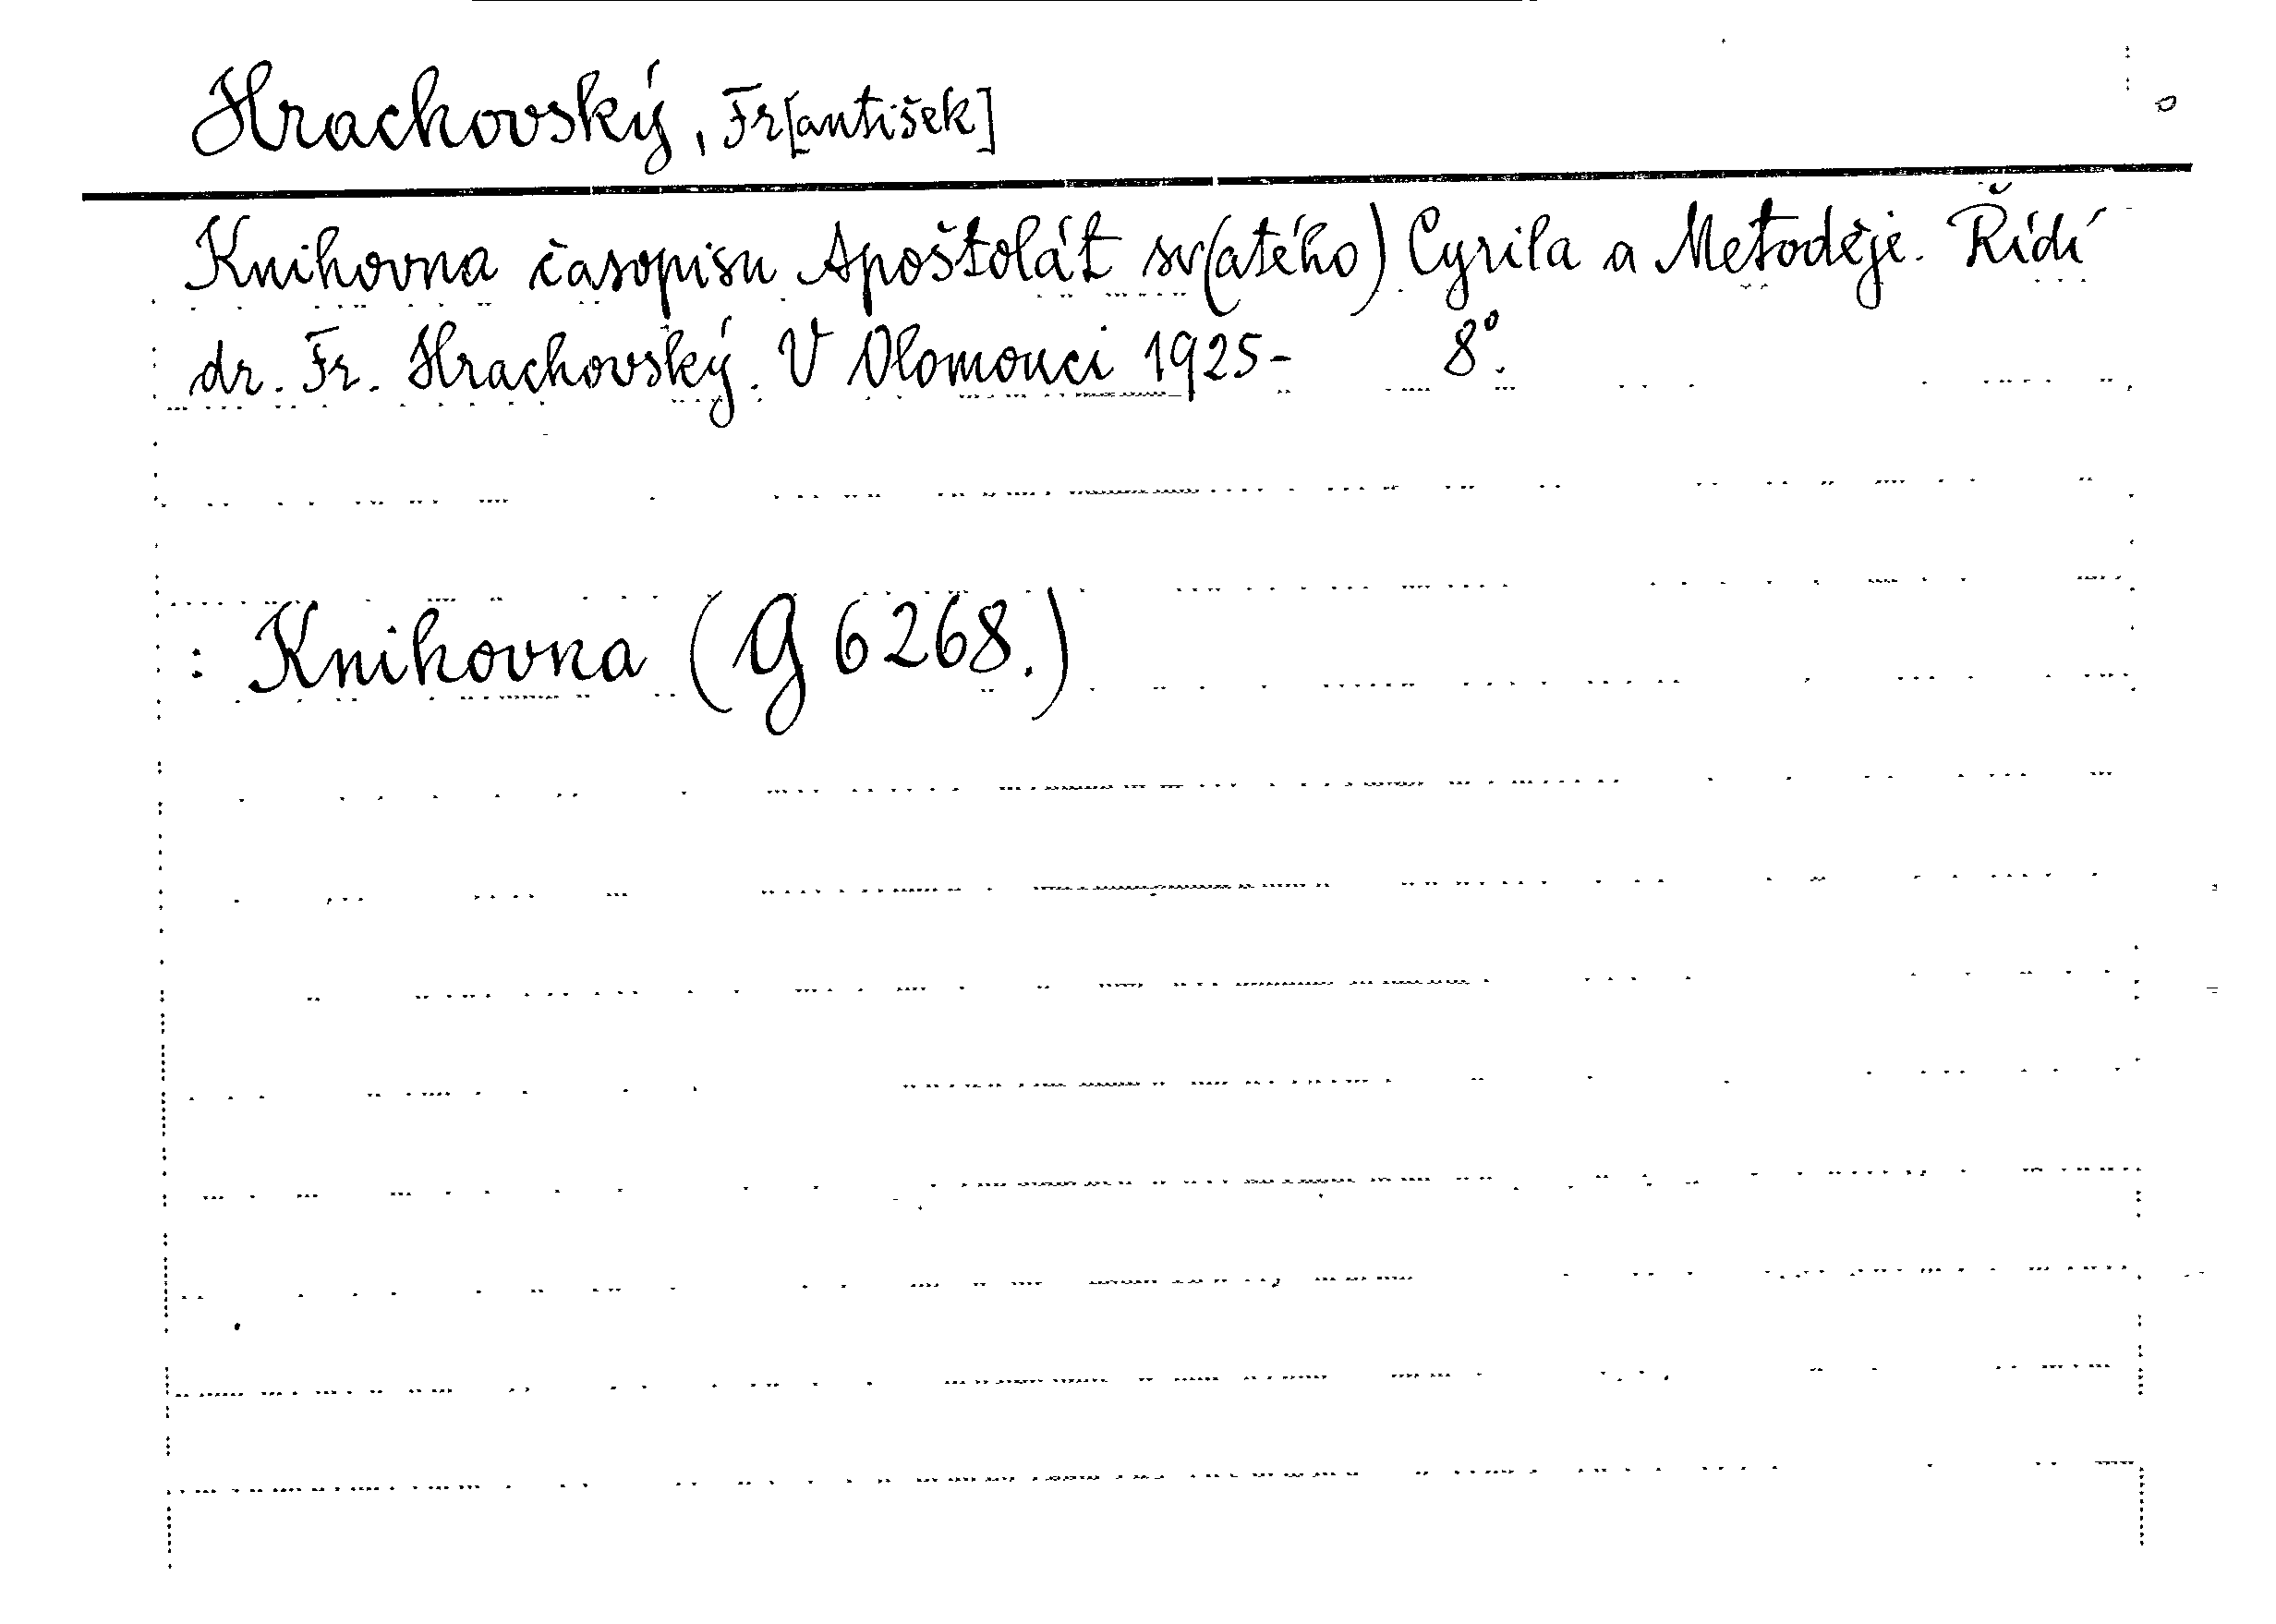 Hrachovský, Fr[antišek]
Knihovna časopisu Apoštolát sv(atého) Cyrila a Metoděje. Řídí
dr. Fr. Hrachovský. V Olomouci 1925- 8°.
: Knihovna (G 6268.)